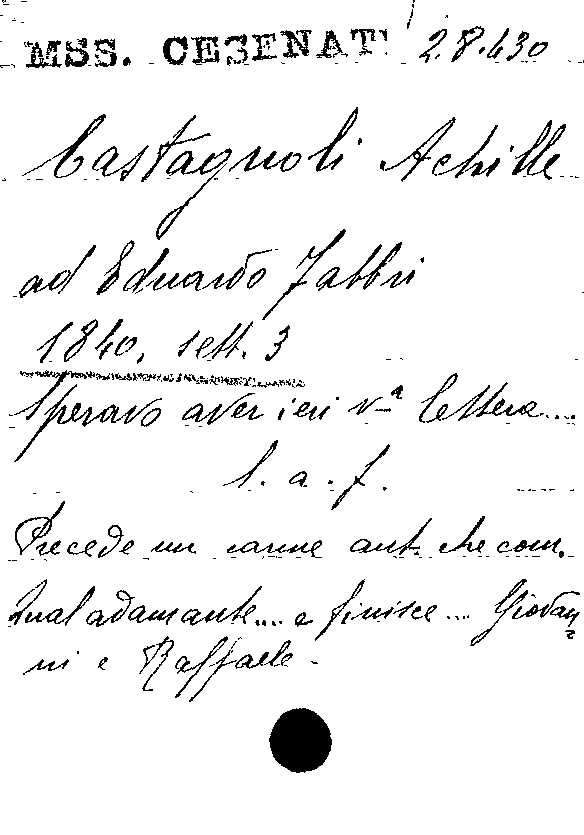 MSS. CESENATI 2.8.430
Castagnoli Achille
ad Eduardo Fabbri
1840, sett. 3
Speravo aver ieri v.a lettera...
l. a. f.
Precede un carme aut. che com.
Qual adamante.... e finisce... Giovan
ni e Raffaele.